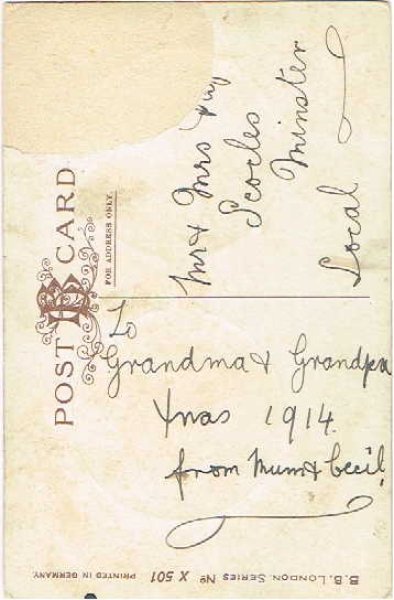 POST CARD
FOR ADDRESS ONLY.
Mr & Mrs
Scocles
Minster
Local
To
Grandma & Grandpa
Xmas 1914
from Mum & Cecil
B.B. LONDON SERIES No X 501 PRINTED IN GERMANY.